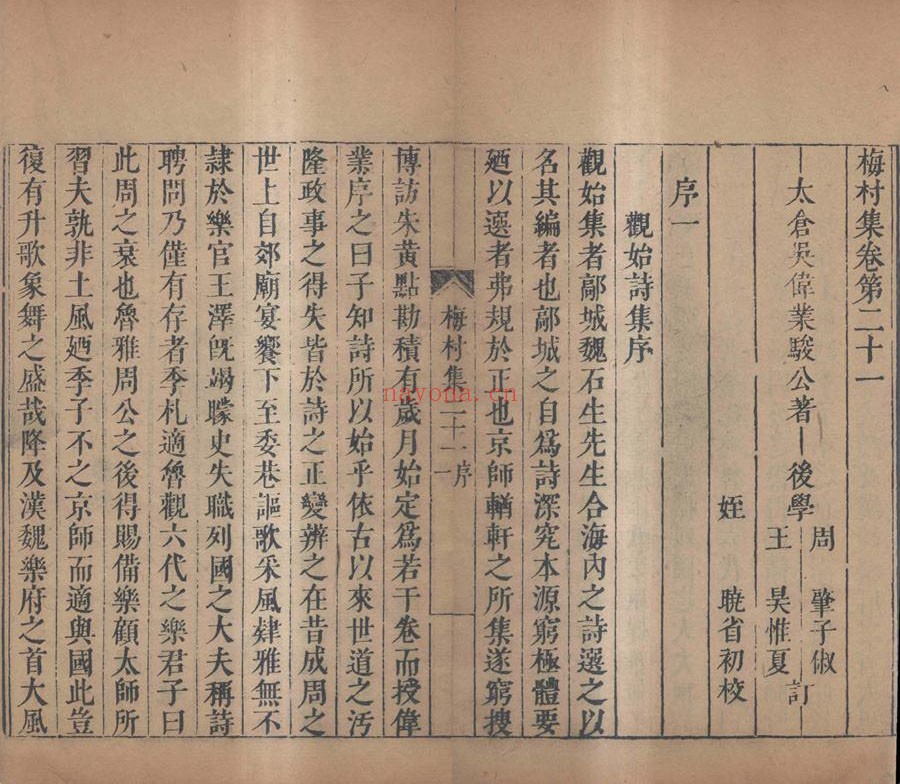 梅村集卷第二十一
太倉吳偉業駿公著 後學
周 肇子俶
王 昊惟夏
訂
姪 曉省初校
序一
觀始詩集序
觀始集者鄗城魏石生先生合海內之詩選之以
名其編者也鄗城之自爲詩深究本源窮極體要
廼以選者弗規於正也京師輶軒之所集遂窮搜
梅村集 二十一 序 一
博訪朱黃點勘積有歲月始定爲若干卷而授偉
業序之曰子知詩所以始乎依古以來世道之汚
隆政事之得失皆於詩之正變辨之在昔成周之
世上自郊廟宴饗下至委巷謳歌采風肄雅無不
隷於樂官王澤旣竭矇史失職列國之大夫稱詩
聘問乃僅有存者季札適魯觀六代之樂君子曰
此周之衰也魯雅周公之後得賜備樂顧太師所
習夫孰非土風廼季子不之京師而適與國此豈
復有升歌象舞之盛哉降及漢魏樂府之首大風
nayona.cn